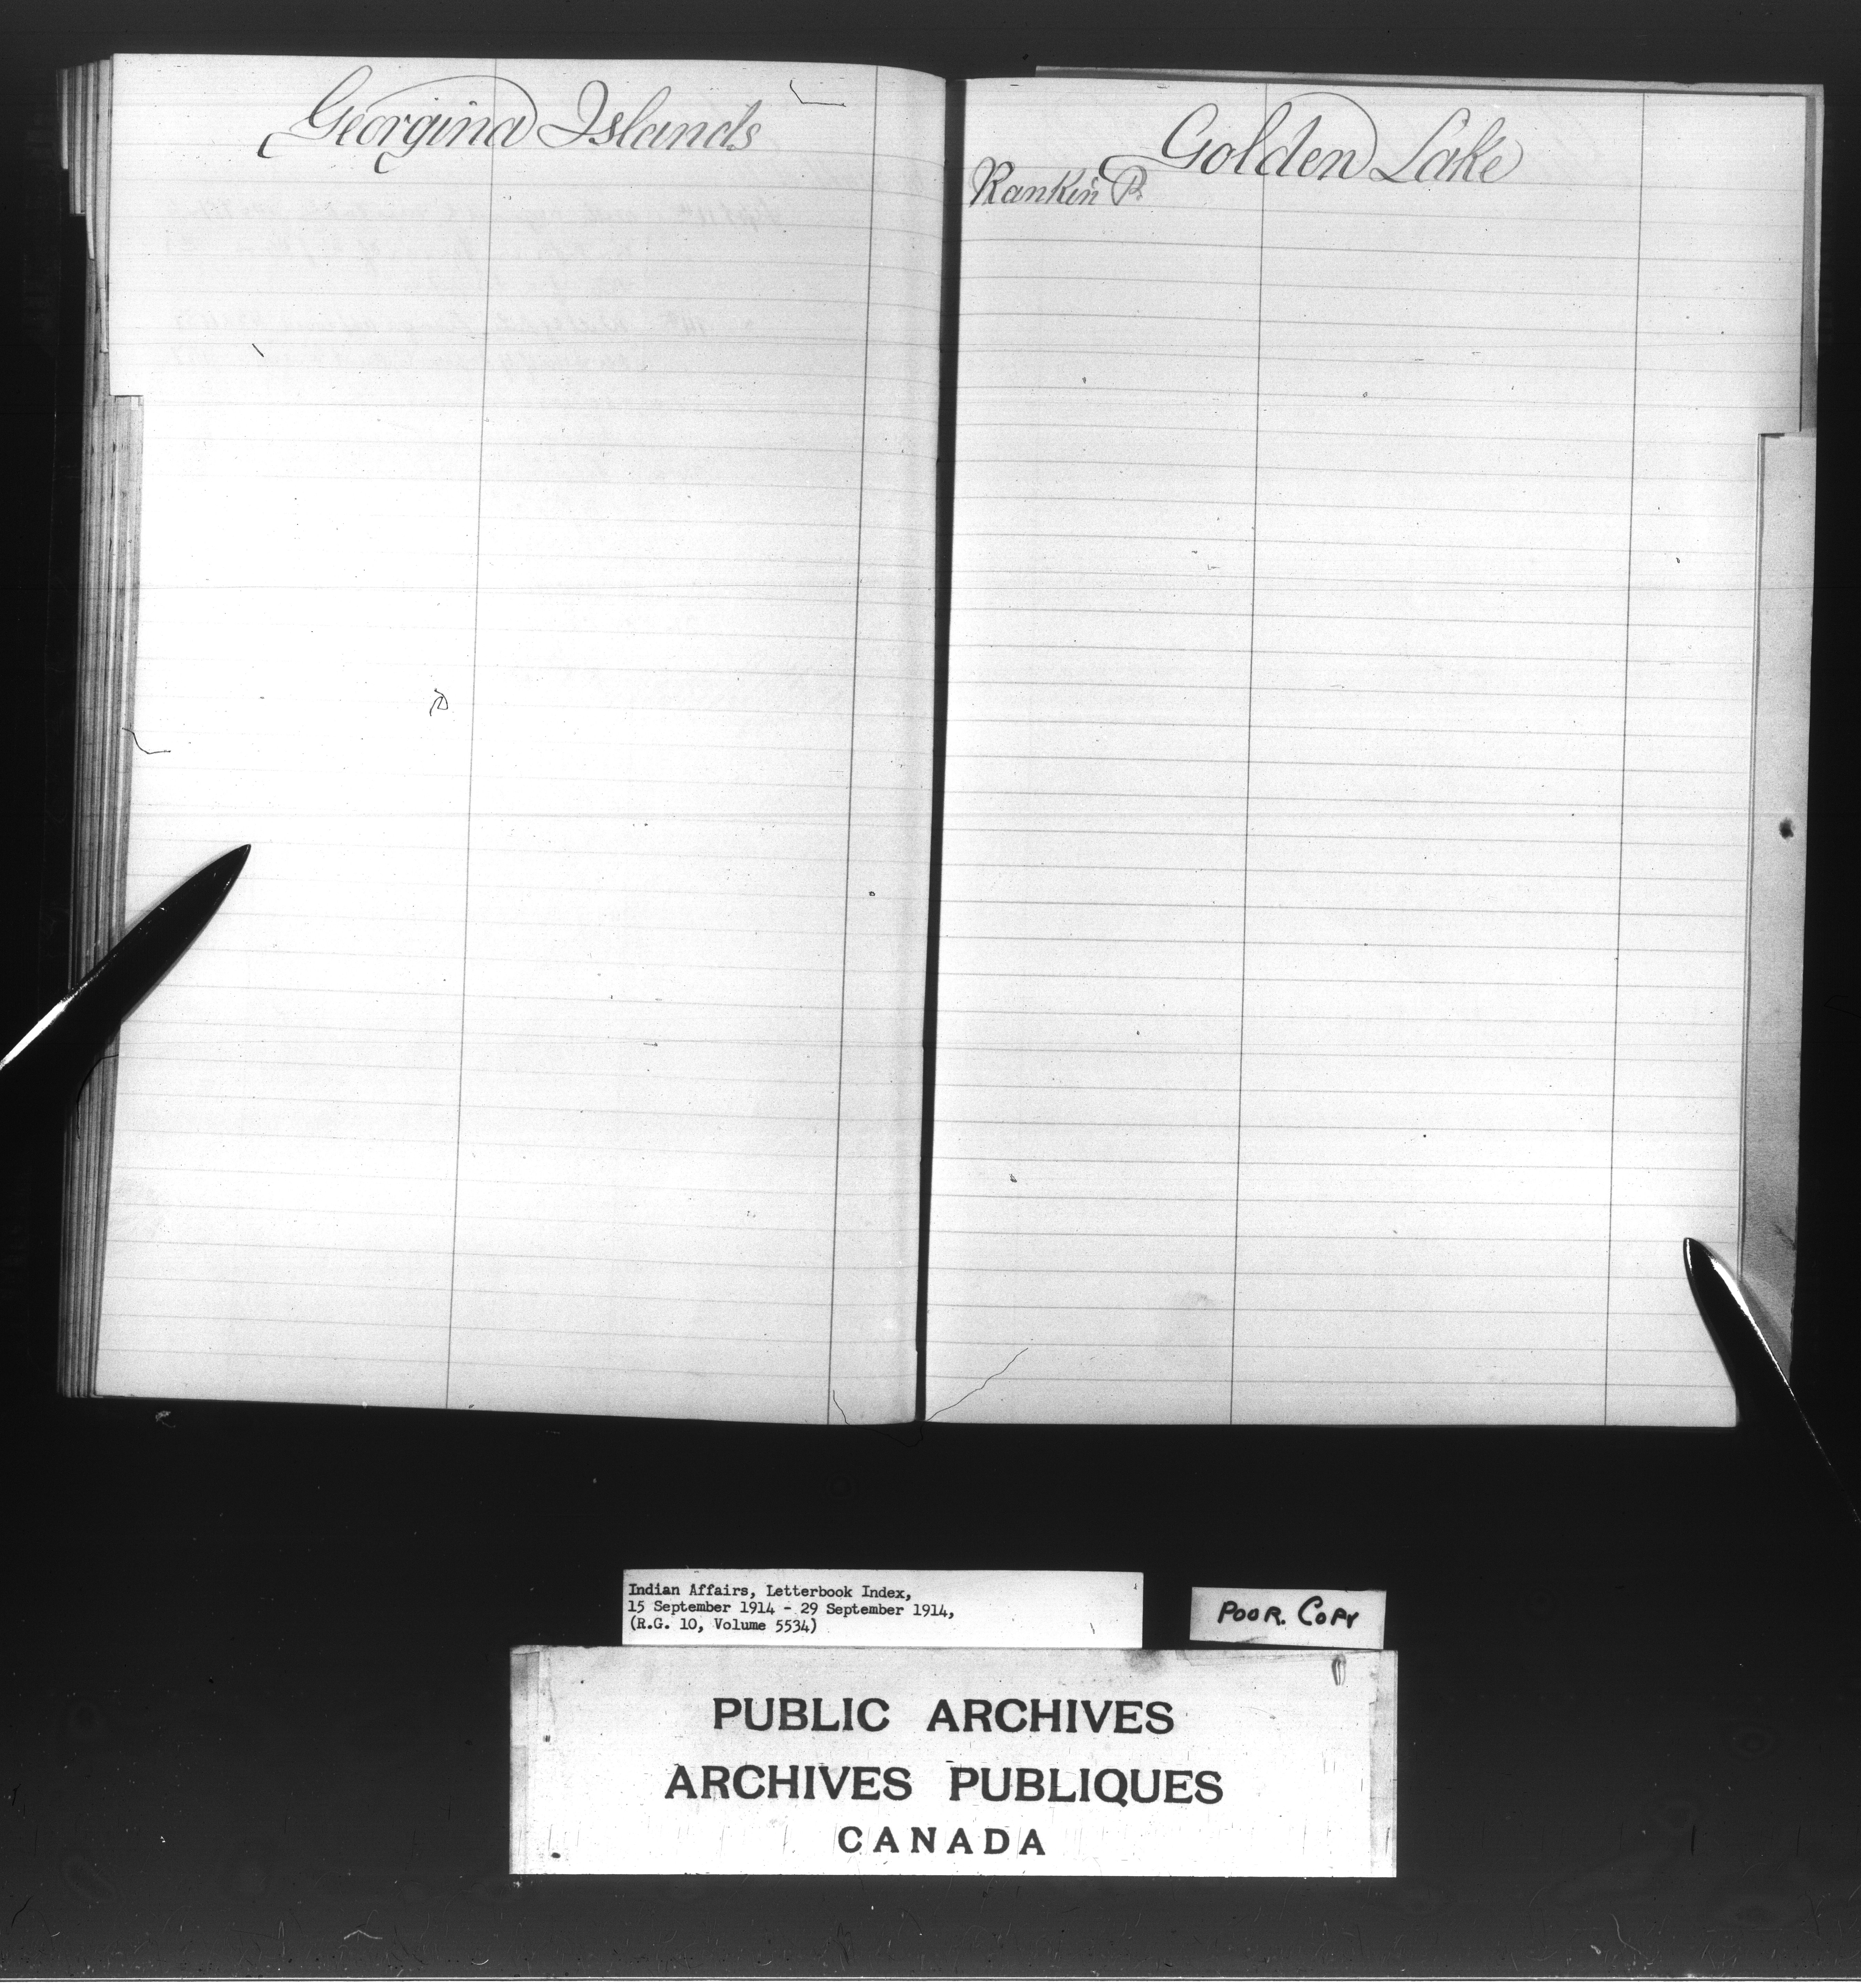 Georgina Islands
Golden Lake
Rankin P.
Indian Affairs, Letterbook Index,
15 September 1914 - 29 September 1914,
(R.G. 10, Volume 5534)
POOR. COPY
PUBLIC ARCHIVES
ARCHIVES PUBLIQUES
CANADA